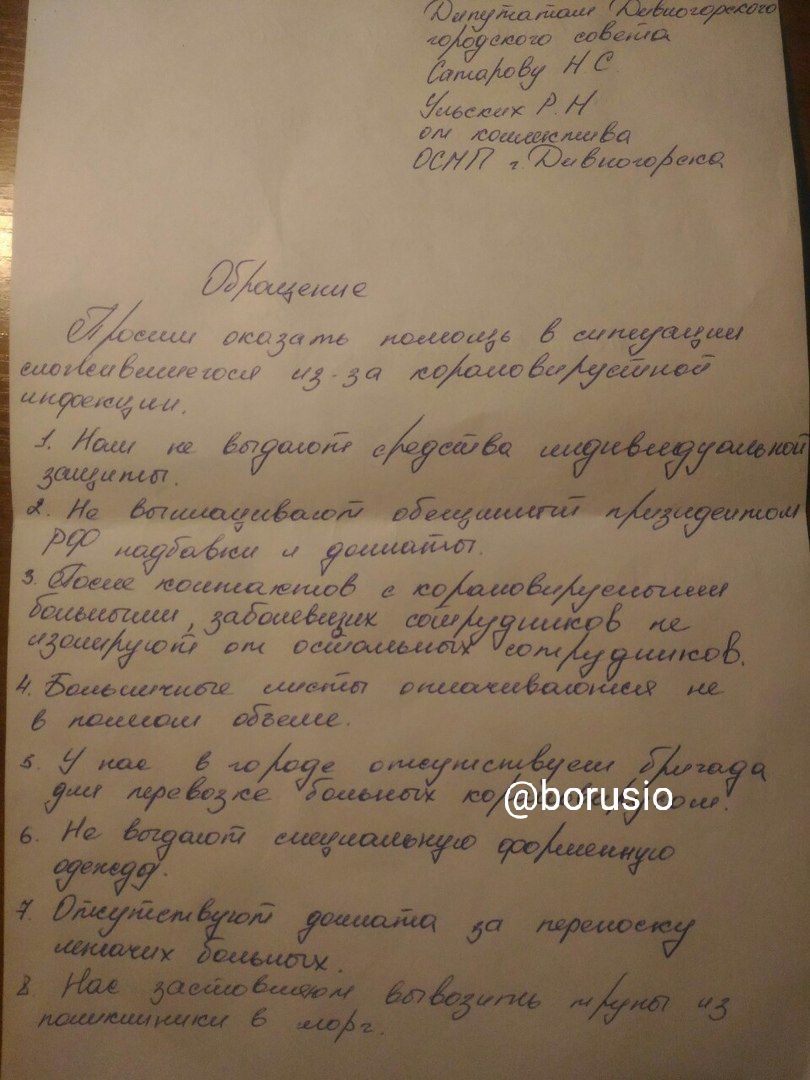 Депутатам Дивногорского
городского совета
Сатарову Н С.
Ульских Р. Н
от коллектива
ОСМП г. Дивногорска
Обращение
Просим оказать помощь в ситуации
сложившегося из-за короновирустной
инфекции.
1. Нам не выдают средства индивидуальной
защиты.
2. Не выплачивают обещаный президентом
РФ надбавки и доплаты.
3. После контактов с короновирусными
больными, заболевших сотрудников не
изолируют от остальных сотрудников.
4. Больничные листы оплачиваются не
в полном объеме.
5. У нас в городе отсутствует бригада
для перевозке больных
@borusio
6. Не выдают специальную форменную
одежду.
7. Отсутствуют доплата за переноску
лежачих больных.
8. Нас заставляют вывозить трупы из
поликлиники в морг.